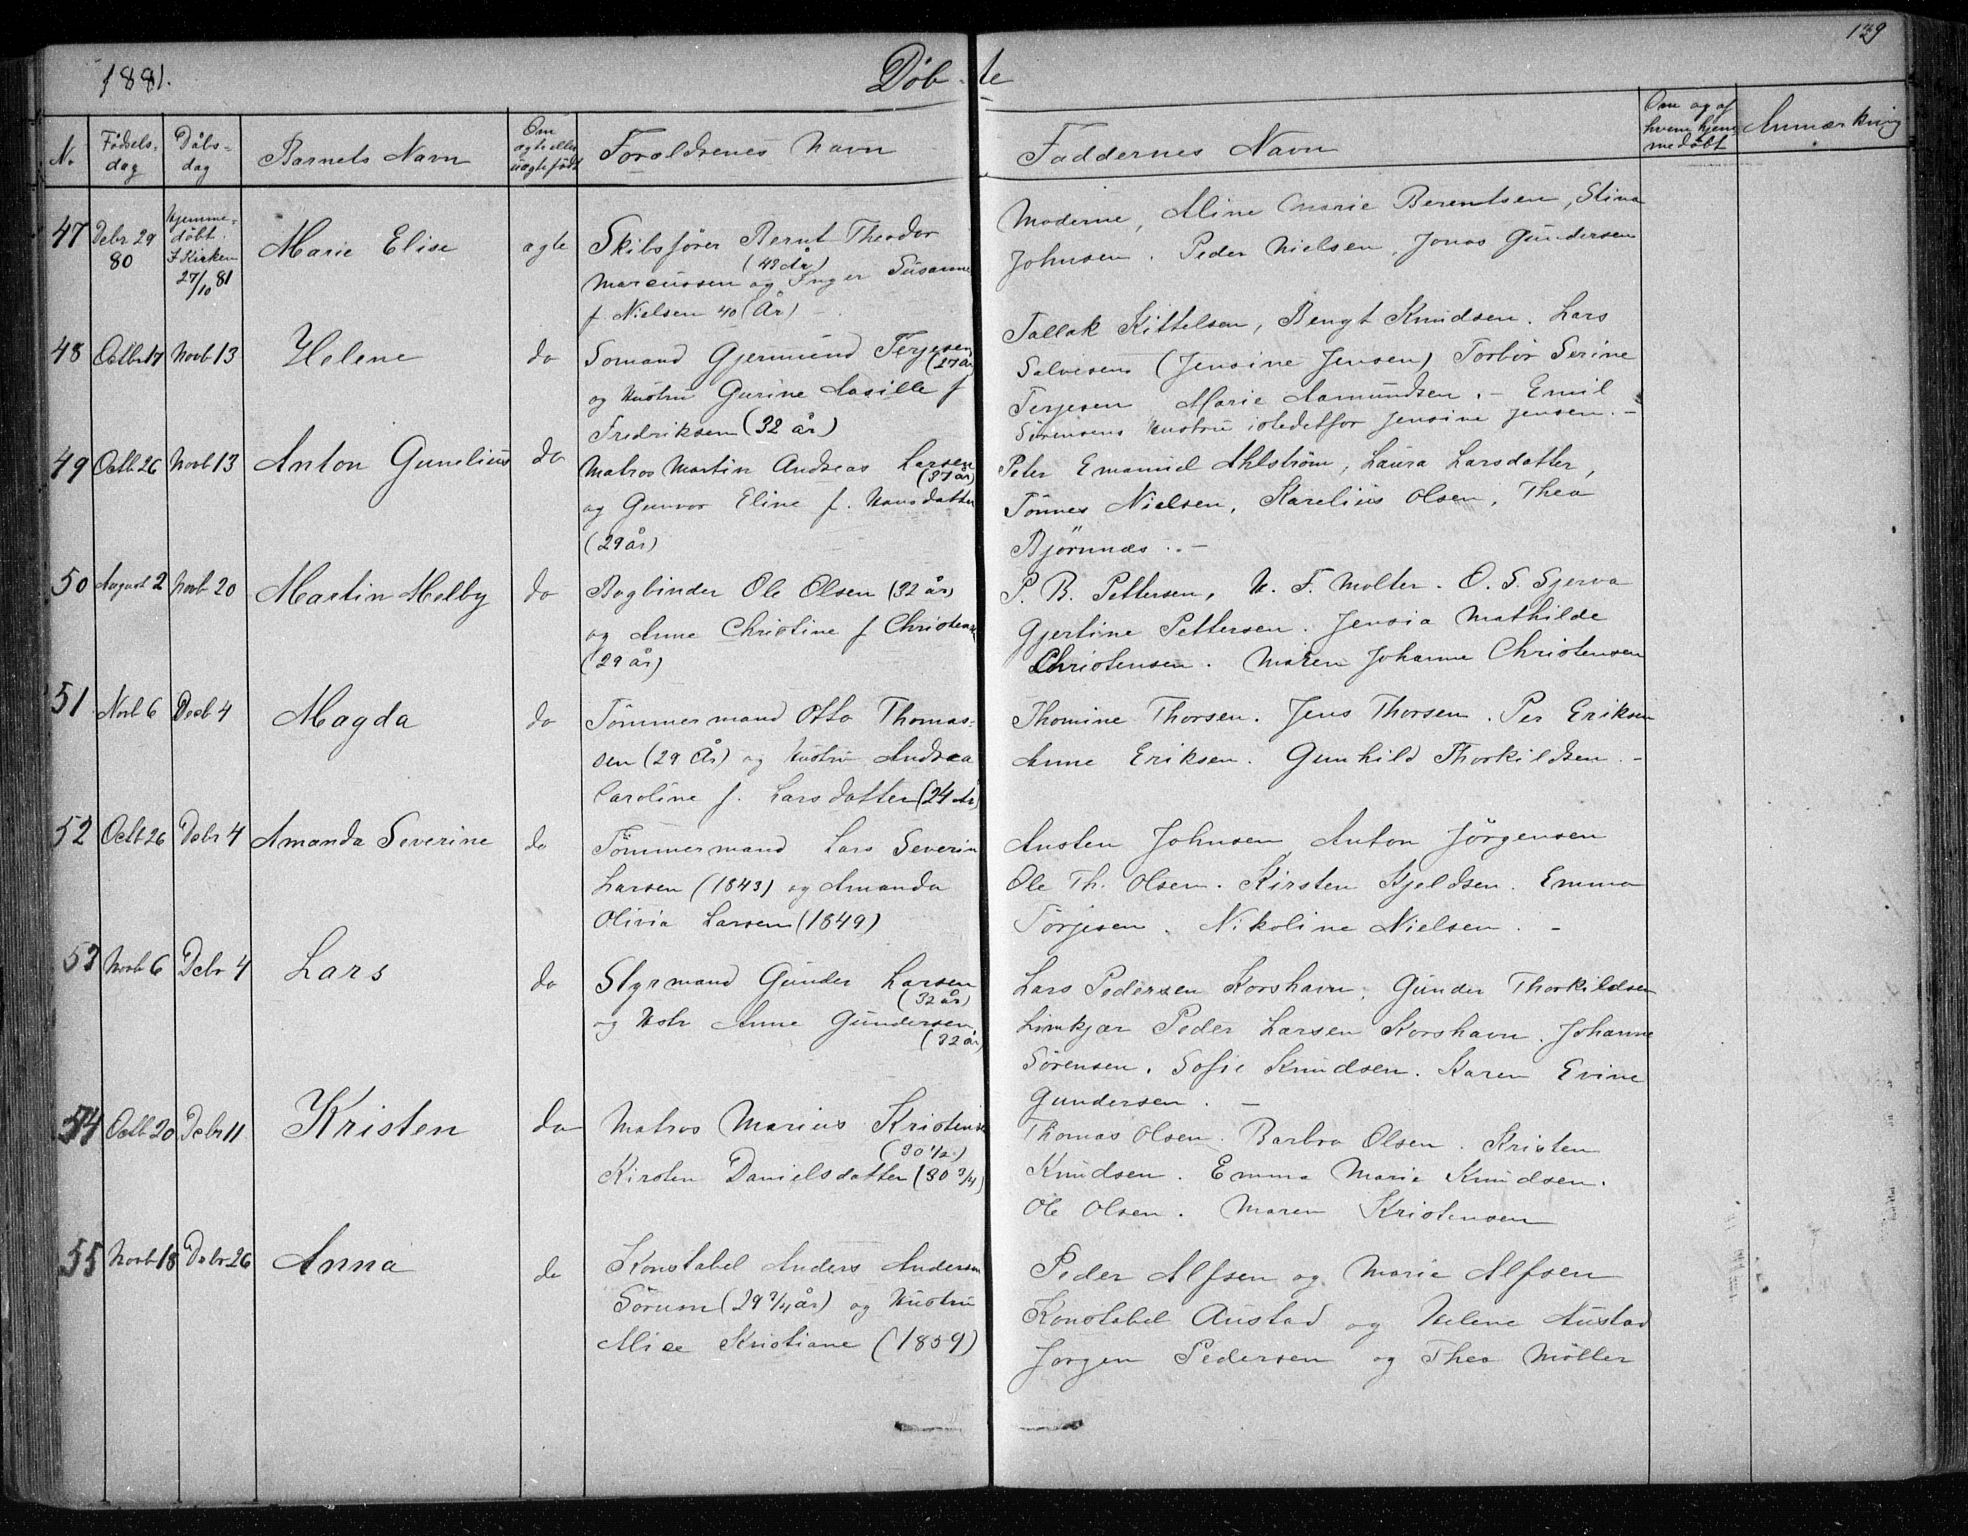 129
1881.
Døb-te
No
Fødsels-
dag
Dåbs-
dag
Barnets Navn
Om
ægte eller
uægte født
Forældrenes Navn
Faddernes Navn
Om og af
hvem hjem-
medøbt
Anmærkning
47
Debr 29
80
Hjemme-
døbt.
I Kirken
27/10 81
Marie Elise
ægte
Skibsfører Bernt Theodor
Marcussen og Inger Susanne
f. Nielsen 40 (År)
Moderne, Aline Marie Berentsen, Stina
Johnsen. Peder Nielsen, Jonas Gundersen
48
Octbr 17
Novb 13
Helene
do
Sømand Gjermund Terjesen
(27 år
og Hustru Gurine Aasille f
Fredriksen (32 år)
Tallak Kittelsen, Bengt Knudsen. Lars
Salvesen (Jensine Jensen) Torbør Serine
Terjesen Marie Aamundsen. - Emil
Sørensens Hustru istedetfor Jensine Jensen. -
49
Octb 26
Novb 13
Anton Gunelius
do
Matros Martin Andreas Larsen
(37 år)
og Gunvor Eline f. Hansdatter
(29 år)
Peter Emanuel Ahlstrøm, Laura Larsdatter,
Tønnes Nielsen, Karelius Olsen, Thea
Bjørnnæs. -
50
August 2
Novb 20
Martin Melby
do
Bogbinder Ole Olsen (32 år)
og Anne Christine f Christensen
(29 år)
P. B. Pettersen, H. F. Molter. O. S. Gjerva
Gjertine Pettersen. Jensia Mathilde
Christensen. Maren Johanne Christensen
51
Novb 6
Decb 4
Magda
do
Tømmermand Otto Thomas-
sen (29 År) og Hustru Andrea
Caroline f. Larsdatter (24 År)
Thomine Thorsen. Jens Thorsen. Per Eriksen
Anne Eriksen. Gunhild Thorkildsen. -
52
Octb 26
Debr 4
Amanda Severine
do
Tømmermand Lars Severin
Larsen (1843) og Amanda
Olivia Larsen (1849)
Austen Johnsen Anton Jörgensen
Ole Th. Olsen. Kirsten Kjeldsen. Emma
Törjesen. Nikoline Nielsen. -
53
Novb 6
Debr 4
Lars
do
Styrmand Gunder Larsen
(32 år)
og Hstr Anne Gundersen
(32 år)
Lars Pedersen Korshavn, Gunder Thorkildsen
Limkjær Peder Larsen Korshavn. Johanne
Sørensen. Sofie Knudsen. Karen Evine
Gundersen. -
54
Octb 20
Debr 11
Kristen
do
Matros Marius Kristensen
(30 1/2)
Kirsten Danielsdatter (30 3/4)
Thomas Olsen. Barbro Olsen. Kristen
Knudsen. Emma Marie Knudsen.
Ole Olsen. Maren Kristensen
55
Novb 18
Debr 26
Anna
do
Konstabel Anders Andersen
Sörum (29 3/4 år) og Hustru
Alice Kristiane (1859)
Peder Alfsen og Marie Alfsen
Konstabel Austad og Helene Austad
Jorgen Pedersen og Thea Möller